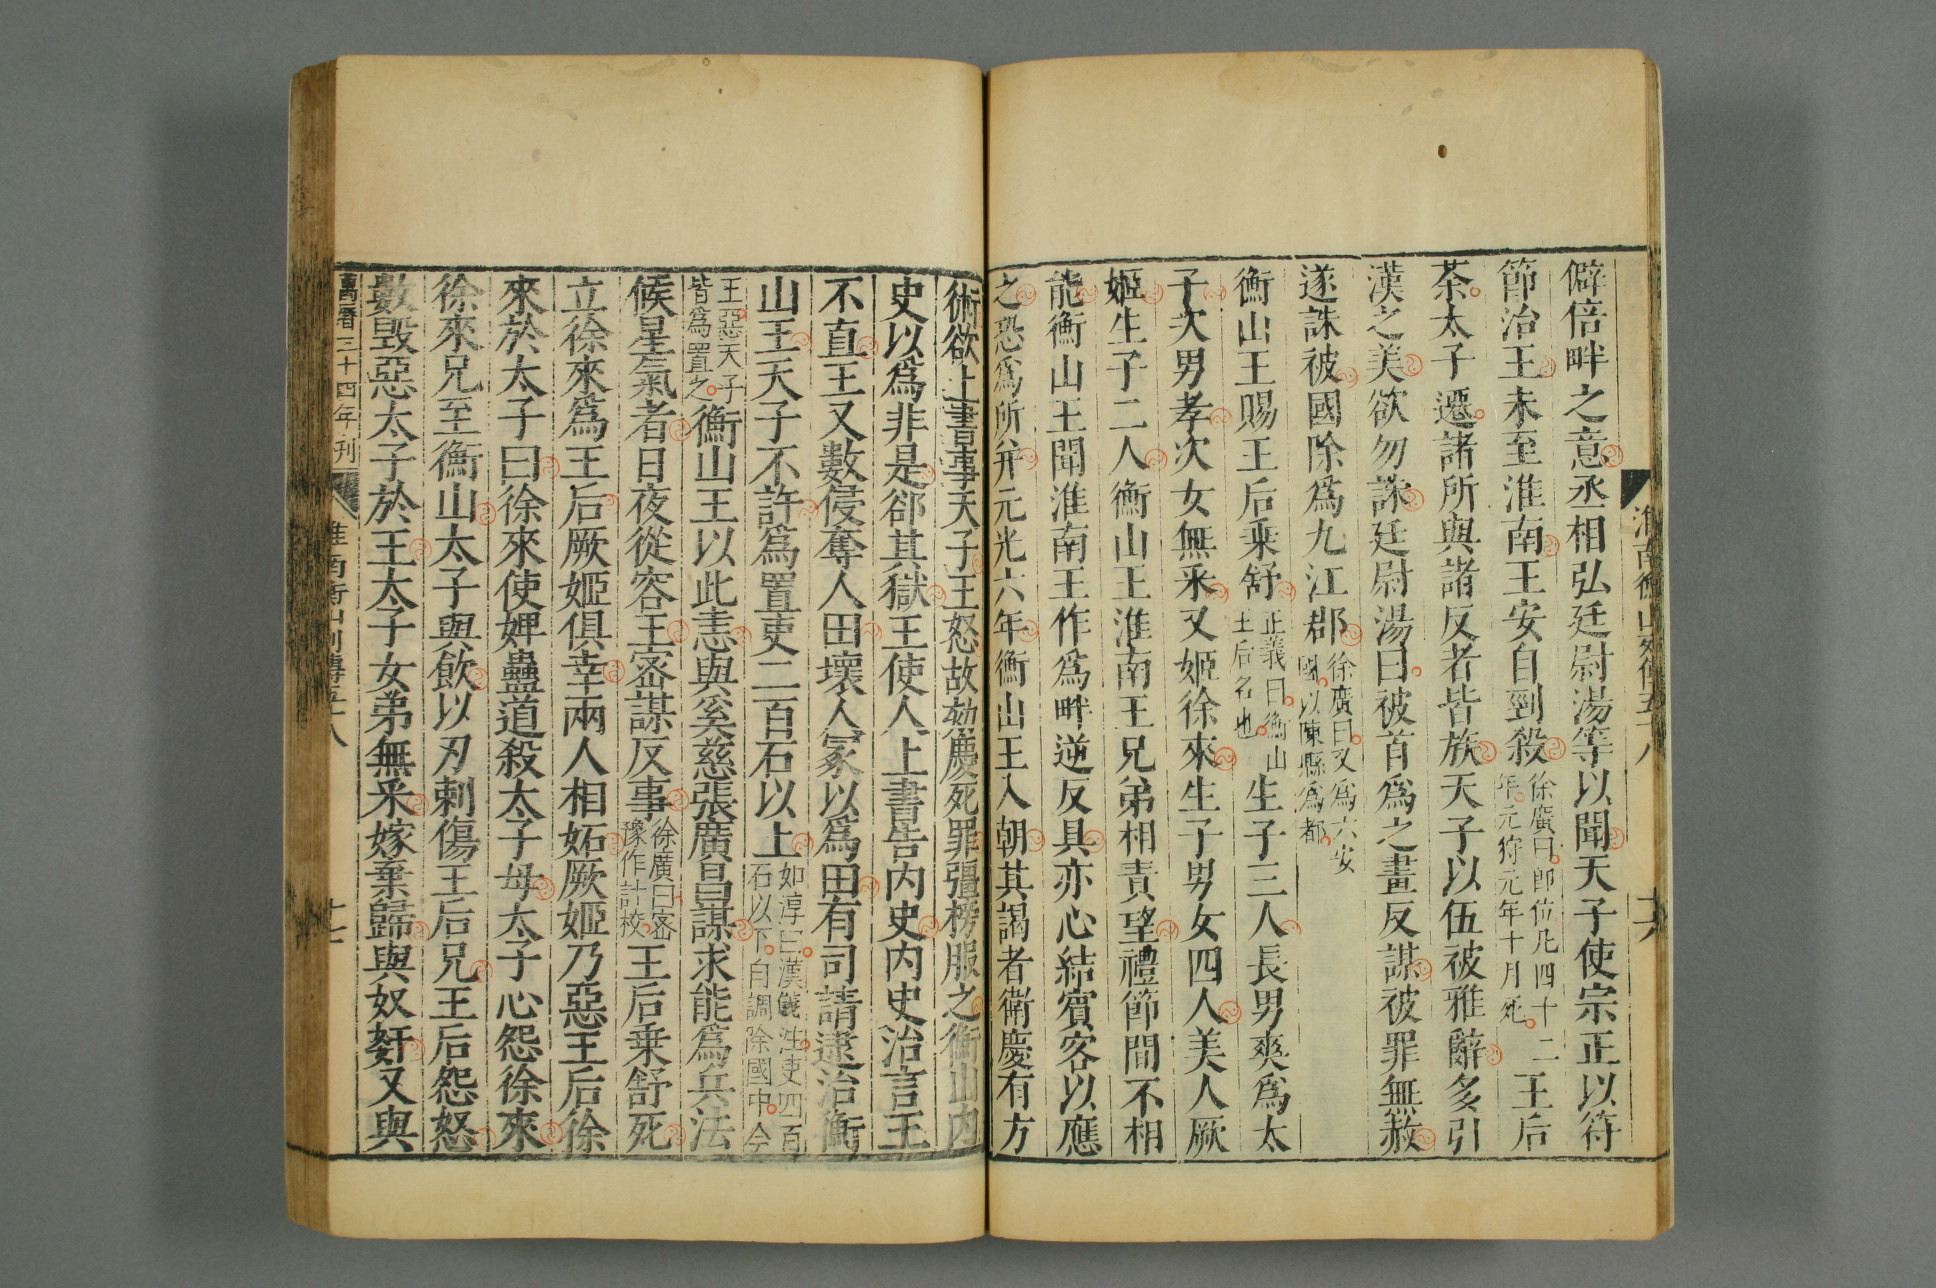 淮南衡山列傳五十八
十六
僻倍畔之意丞相弘廷尉湯等以聞天子使宗正以符
節治王未至淮南王安自剄殺徐廣曰卽位凡四十二年元狩元年十月死王后
荼太子遷諸所與諸反者皆族天子以伍被雅辭多引
漢之美欲勿誅廷尉湯曰被首爲之畫反謀被罪無赦
遂誅被國除爲九江郡徐廣曰又爲六安國以陳縣爲都
衡山王賜王后乗舒正義曰衡山王后名也生子三人長男爽爲太
子次男孝次女無采又姬徐來生子男女四人美人厥
姬生子二人衡山王淮南王兄弟相責望禮節間不相
能衡山王聞淮南王作爲畔逆反具亦心結賓客以應
之恐爲所幷元光六年衡山王入朝其謁者衛慶有方
術欲上書事天子王怒故劾慶死罪彊榜服之衡山内
史以爲非是郤其獄王使人上書告内史内史治言王
不直王又數侵奪人田壞人冢以爲田有司請逮治衡
山王天子不許爲置吏二百石以上如淳曰漢儀注吏四百石以下自調除國中今
王惡天子皆爲置之衡山王以此恚與奚慈張廣昌謀求能爲兵法
候星氣者日夜從容王密謀反事徐廣曰密豫作計校王后乗舒死
立徐來爲王后厥姬俱幸兩人相妬厥姬乃惡王后徐
來於太子曰徐來使婢蠱道殺太子母太子心怨徐來
徐來兄至衡山太子與飲以刃刺傷王后兄王后怨怒
數毁惡太子於王太子女弟無采嫁棄歸與奴姦又與
萬曆三十四年刊
淮南衡山列傳五十八
十七